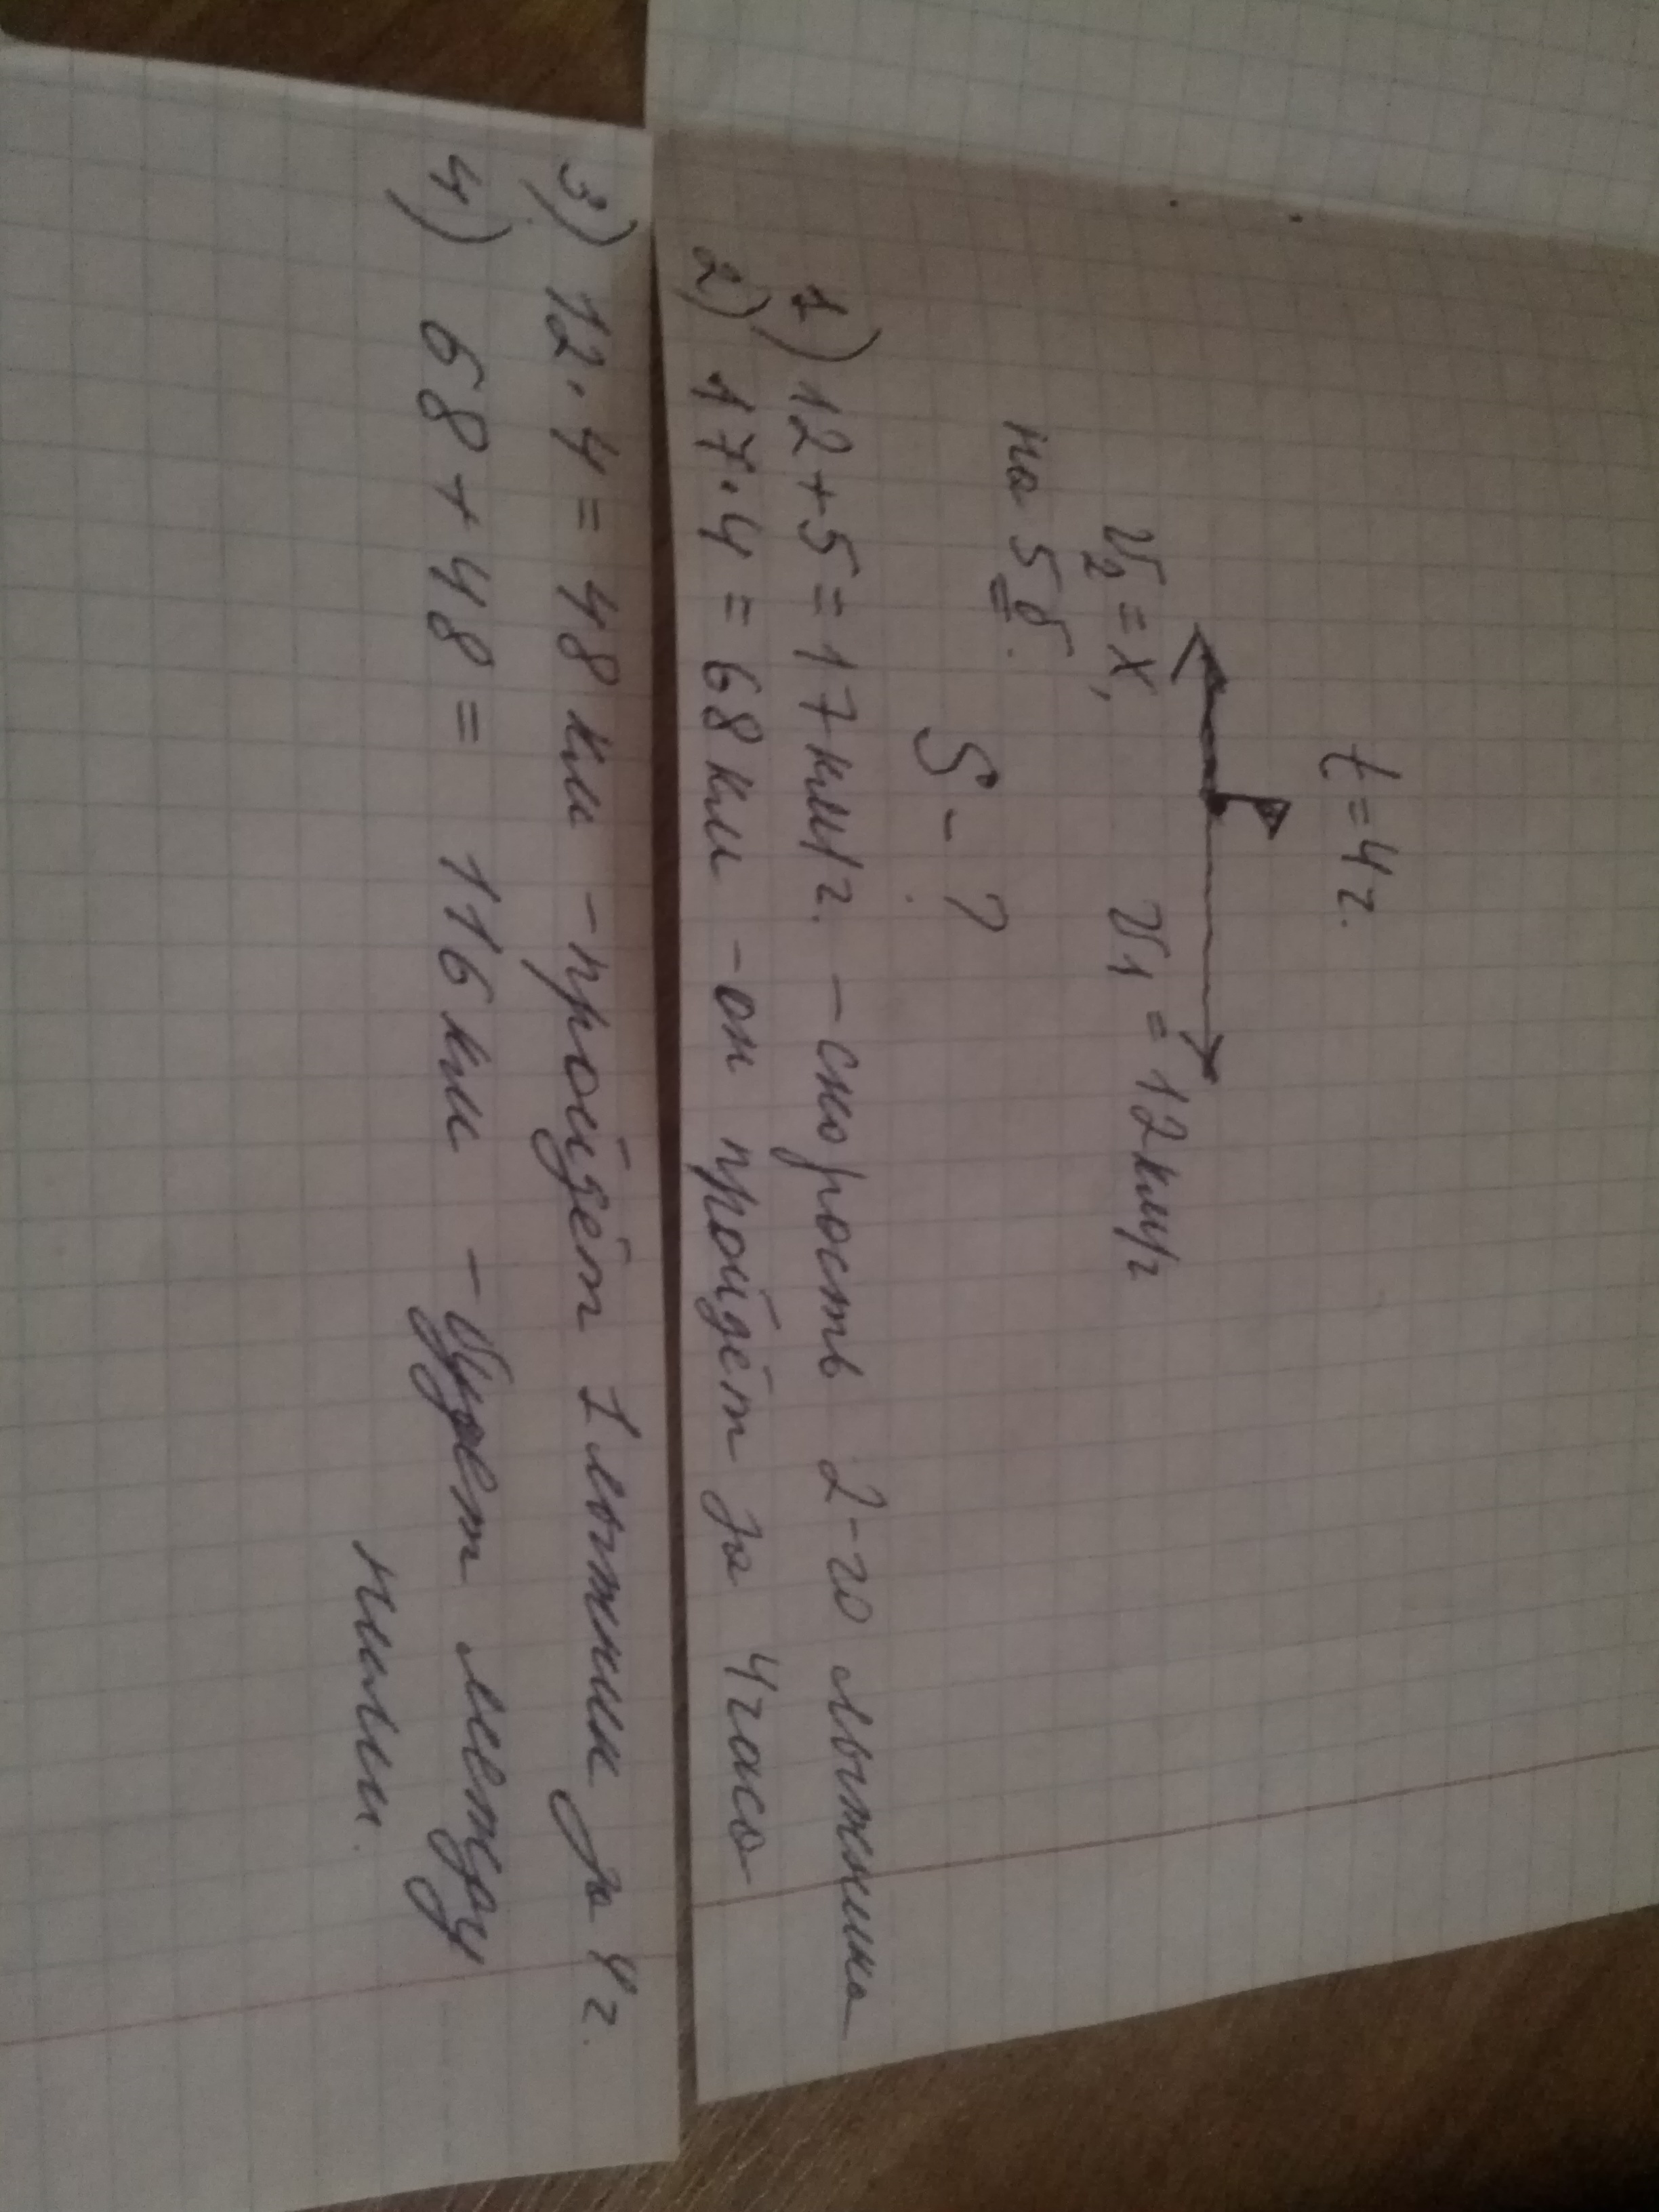 t = 4 ч.
V₂ = x, V₁ = 12 км/ч
на 5 б.
S - ?
1) 12 + 5 = 17 км/ч. - скорость 2-го лыжника
2) 17 · 4 = 68 км - он пройдёт за 4 часа
3) 12 · 4 = 48 км - пройдёт 1 лыжник за 4 ч.
4) 68 + 48 = 116 км - будет между
ними.